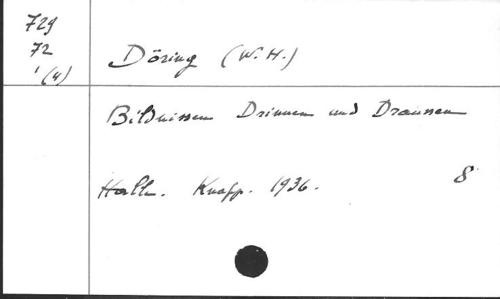 729
72
1(4)
Döring (W.H.)
Bildnissen Drinnen und Draussen
Halle. Knapp. 1936.
8